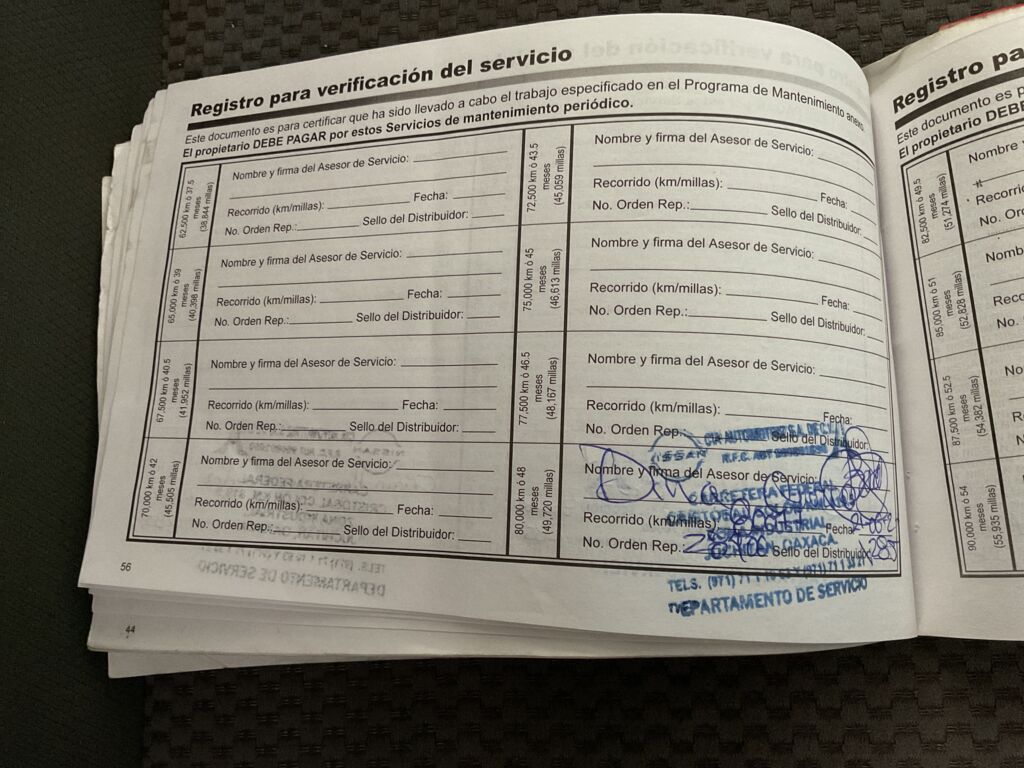 Registro para verificación del servicio
Este documento es para certificar que ha sido llevado a cabo el trabajo especificado en el Programa de Mantenimiento anexo
El propietario DEBE PAGAR por estos Servicios de mantenimiento periódico.
62,500 km ó 37.5
meses
(38,844 millas)
Nombre y firma del Asesor de Servicio:
Recorrido (km/millas): Fecha:
No. Orden Rep.: Sello del Distribuidor:
65,000 km ó 39
meses
(40,398 millas)
Nombre y firma del Asesor de Servicio:
Recorrido (km/millas): Fecha:
No. Orden Rep.: Sello del Distribuidor:
67,500 km ó 40.5
meses
(41,952 millas)
Nombre y firma del Asesor de Servicio:
Recorrido (km/millas): Fecha:
No. Orden Rep.: Sello del Distribuidor:
70,000 km ó 42
meses
(45,505 millas)
Nombre y firma del Asesor de Servicio:
Recorrido (km/millas): Fecha:
No. Orden Rep.: Sello del Distribuidor:
72,500 km ó 43.5
meses
(45,059 millas)
Nombre y firma del Asesor de Servicio:
Recorrido (km/millas): Fecha:
No. Orden Rep.: Sello del Distribuidor:
75,000 km ó 45
meses
(46,613 millas)
Nombre y firma del Asesor de Servicio:
Recorrido (km/millas): Fecha:
No. Orden Rep.: Sello del Distribuidor:
77,500 km ó 46.5
meses
(48,167 millas)
Nombre y firma del Asesor de Servicio:
Recorrido (km/millas): Fecha:
No. Orden Rep.: Sello del Distribuidor:
80,000 km ó 48
meses
(49,720 millas)
Nombre y firma del Asesor de Servicio:
Recorrido (km/millas): Fecha:
No. Orden Rep.: Sello del Distribuidor:
NISSAN
R.F.C.
CARRETERA FEDERAL
OAXACA.
TELS. (971)
DEPARTAMENTO DE SERVICIO
56
44
Registro pa
Este documento es p
El propietario DEBE
82,500 km ó 49.5
meses
(51,274 millas)
Nombre y
Recorrid
No. Or
85,000 km ó 51
meses
(52,828 millas)
Nomb
Reco
No.
87,500 km ó 52.5
meses
(54,382 millas)
No
Re
N
90,000 km ó 54
meses
(55,935 millas)